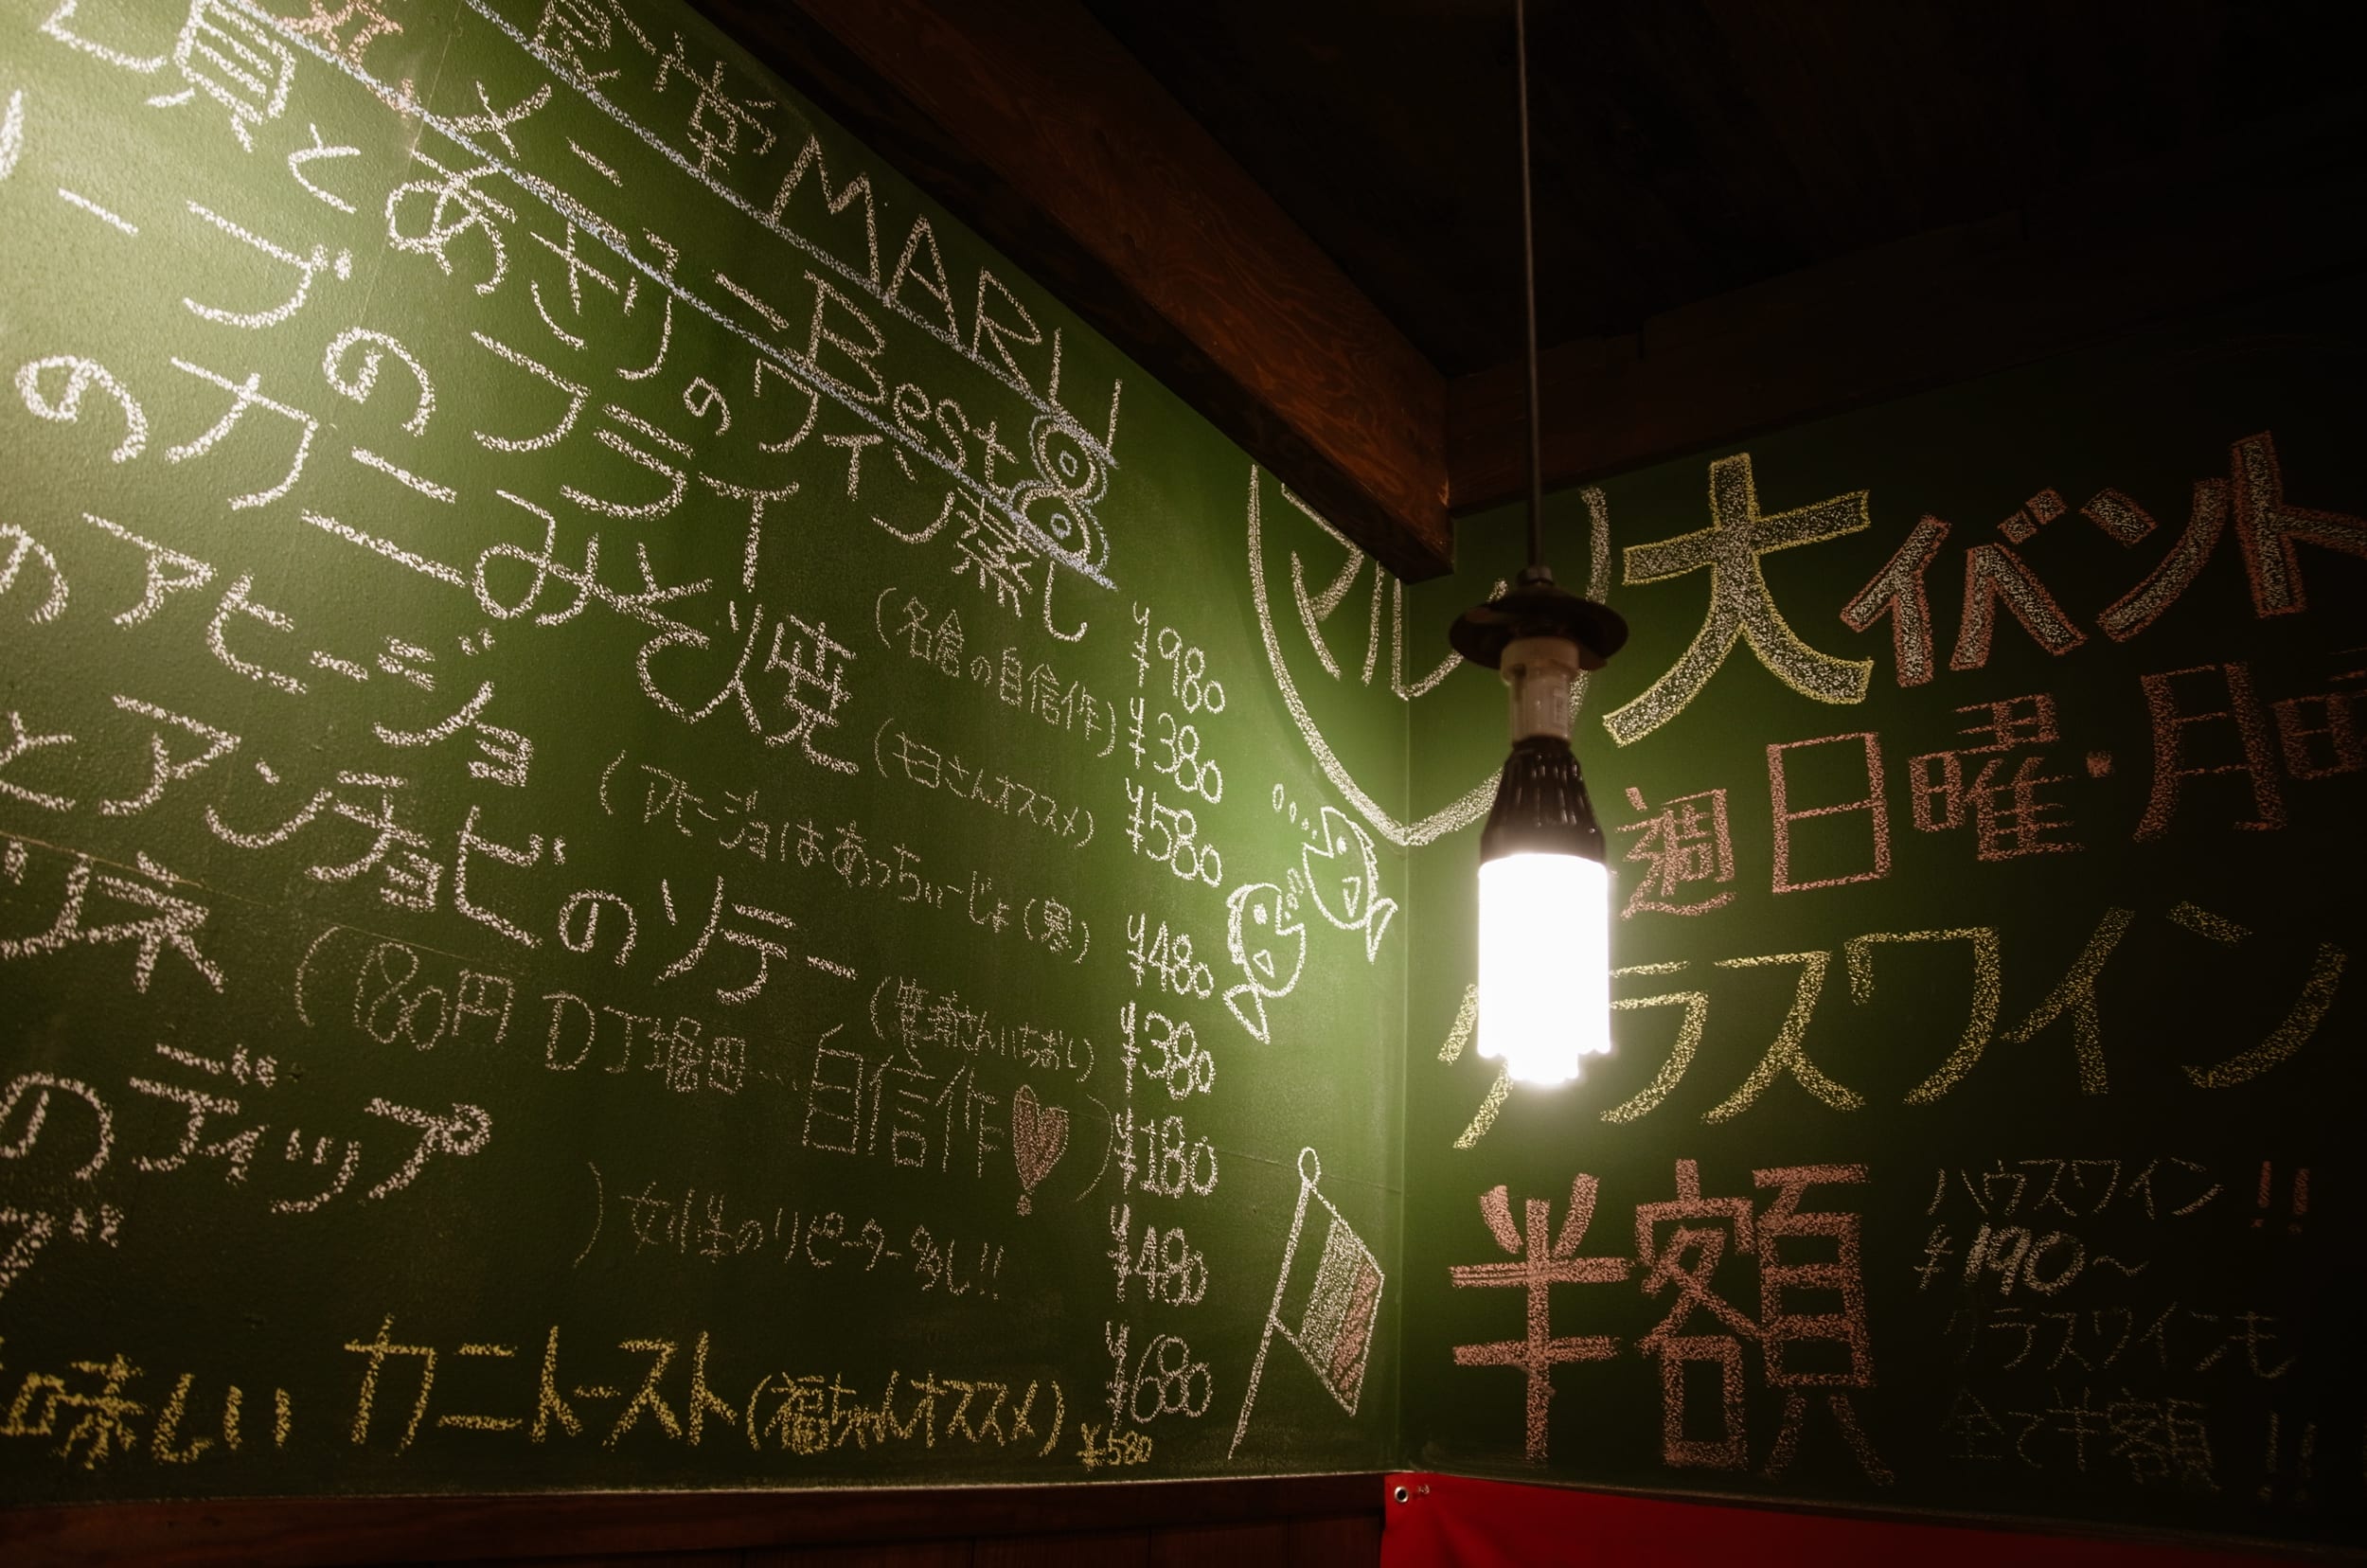 食堂MARU
メニューBest 8
貝とあさりのワイン蒸し ¥980
(名倉の自信作)
ーブのフライ ¥380
(キヨさんオススメ)
のカニみそ焼 ¥580
のアヒージョ
(アヒージョはあっちぃーじょ(寒) ¥480
とアンチョビのソテー
さんいちおし) ¥380
(180円 DJ堀田 自信作 ¥180
のディップ
) 女性のリピーター多し!! ¥480
¥680
味しいカニトースト(福ちゃんオススメ) ¥580
マル
大イベント
週日曜・月曜
グラスワイン
半額
ハウスワイン!!
¥190~
グラスワインも
全て半額!!